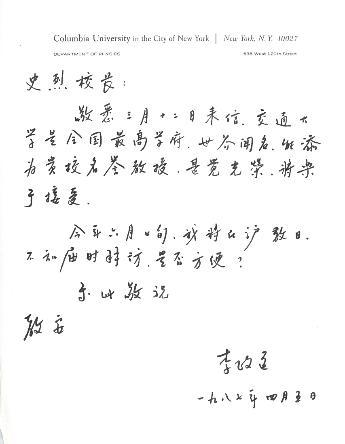 Columbia University in the City of New York | New York, N.Y. 10027
DEPARTMENT OF PHYSICS 538 West 120th Street
史烈校长:
敬悉三月十二日来信. 交通大
学是全国最高学府, 世界闻名, 能添
为贵校名誉教授, 甚觉光荣, 将乐
于接受.
今年六月旬, 我将在沪数日.
不知届时拜访, 是否方便?
专此敬祝
教安
李政道
一九八七年四月五日